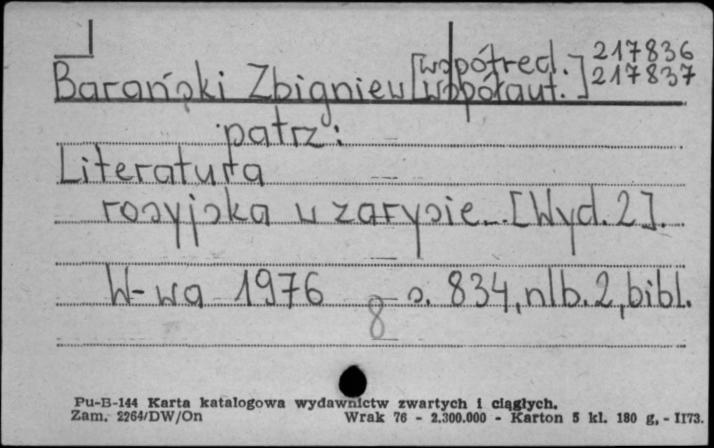 217836
Barański Zbigniew [współred. współaut.] 217837
patrz:
Literatura
rosyjska w zarysie. [Wyd.2].
W-wa 1976 s. 834,nlb.2,bibl.
8
Pu-B-144 Karta katalogowa wydawnictw zwartych i ciągłych.
Zam. 2264/DW/On Wrak 76 - 2.300.000 - Karton 5 kl. 180 g. - II73.